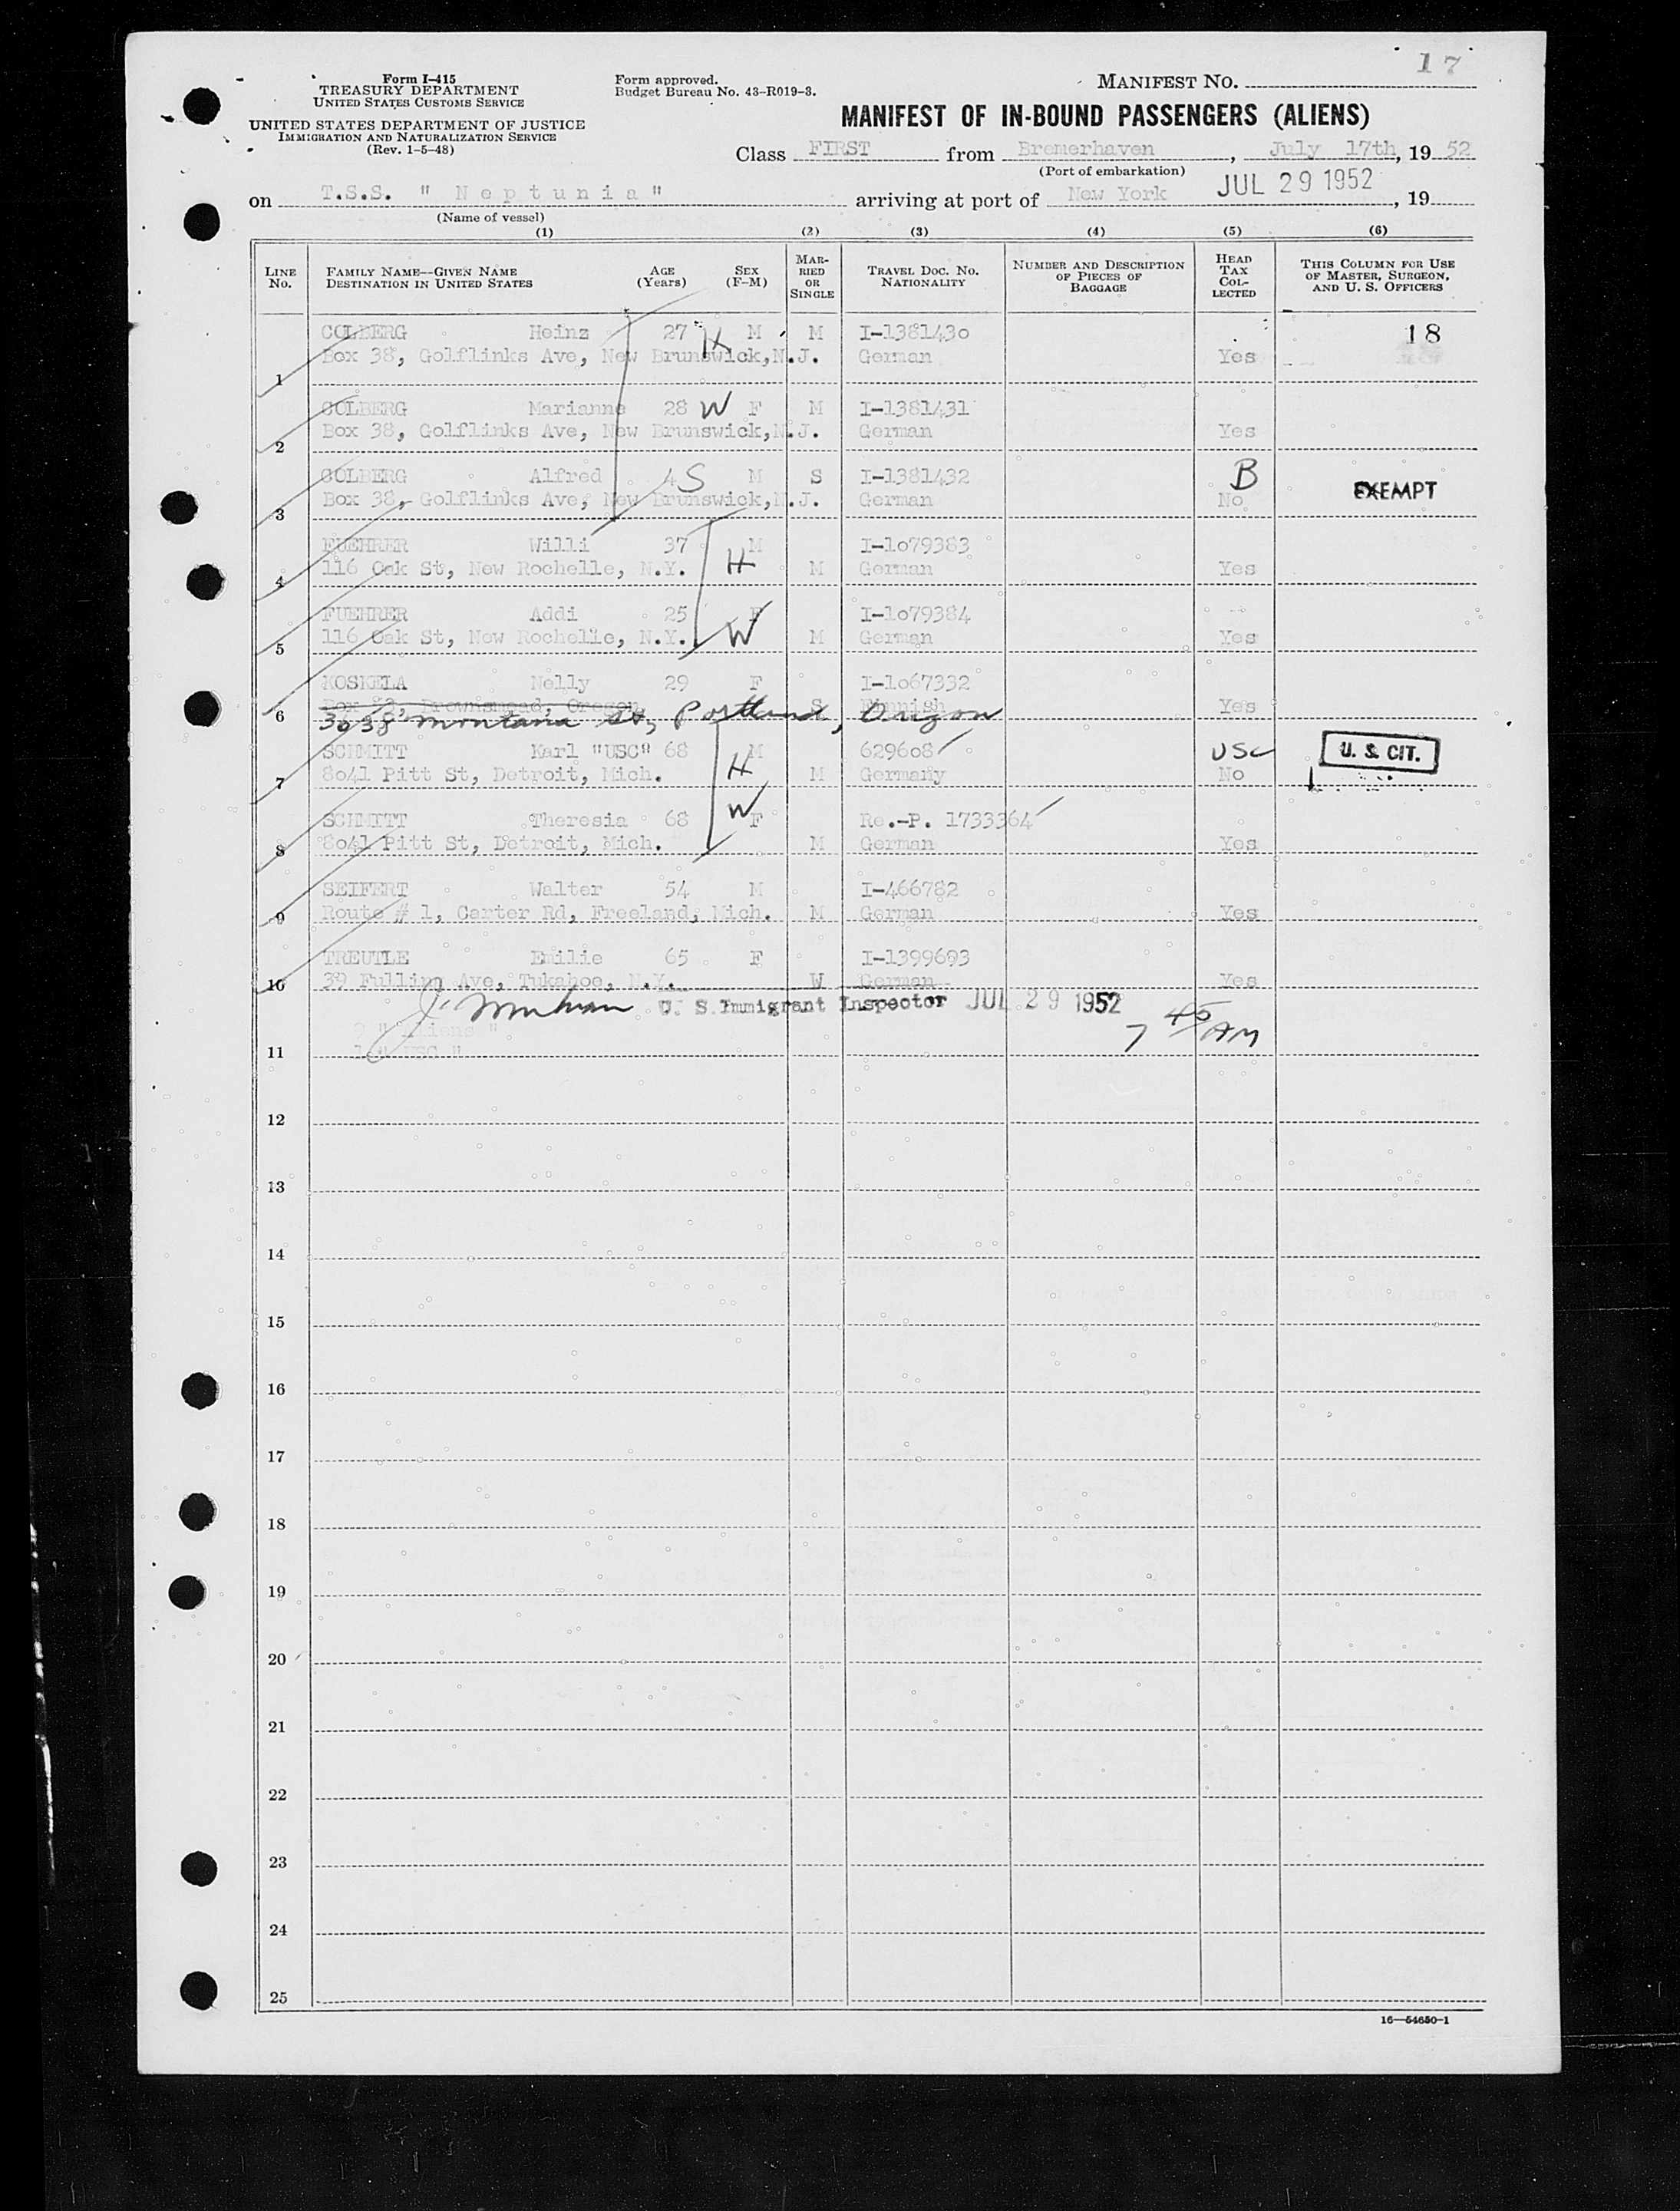 17
Form I-415
TREASURY DEPARTMENT
UNITED STATES CUSTOMS SERVICE
UNITED STATES DEPARTMENT OF JUSTICE
IMMIGRATION AND NATURALIZATION SERVICE
(Rev. 1-5-48)
Form approved.
Budget Bureau No. 43-R019-3.
MANIFEST NO.
MANIFEST OF IN-BOUND PASSENGERS (ALIENS)
Class FIRST from Bremerhaven, July 17th, 19 52
(Port of embarkation)
on T.S.S. " Neptunia " arriving at port of New York JUL 29 1952, 19
(Name of vessel)
(1) (2) (3) (4) (5) (6)
LINE No. FAMILY NAME—GIVEN NAME DESTINATION IN UNITED STATES AGE (Years) SEX (F-M) MARRIED OR SINGLE TRAVEL DOC. No. NATIONALITY NUMBER AND DESCRIPTION OF PIECES OF BAGGAGE HEAD TAX COLLECTED THIS COLUMN FOR USE OF MASTER, SURGEON, AND U. S. OFFICERS
COLBERG Heinz 27 H M M I-1381430 18
1 Box 38, Golflinks Ave, New Brunswick, N.J. German Yes
COLBERG Marianne 28 W F M I-1381431
2 Box 38, Golflinks Ave, New Brunswick, N.J. German Yes
COLBERG Alfred 4 S M S I-1381432 B
3 Box 38, Golflinks Ave, New Brunswick, N.J. German No EXEMPT
FUEHRER Willi 37 M I-1079383
4 116 Oak St, New Rochelle, N.Y. H M German Yes
FUEHRER Addi 25 F I-1079384
5 116 Oak St, New Rochelle, N.Y. W M German Yes
KOSKELA Nelly 29 F I-1067332
Brownsmead, Oregon S Finnish Yes
6 3038 Montana St, Portland, Oregon
SCHMITT Karl "USC" 68 M 629608 USC U. S. CIT.
7 8041 Pitt St, Detroit, Mich. H M Germany No
SCHMITT Theresia 68 W F Re.-P. 1733364
8 8041 Pitt St, Detroit, Mich. M German Yes
SEIFERT Walter 54 M I-466782
9 Route # 1, Carter Rd, Freeland, Mich. M German Yes
TREUTLE Emilie 65 F I-1399693
10 39 Fulling Ave, Tukahoe, N.Y. W German Yes
U. S. Immigrant Inspector JUL 29 1952
7 45 AM
"Aliens"
11 1 "USC"
12
13
14
15
16
17
18
19
20
21
22
23
24
25
16—54650-1